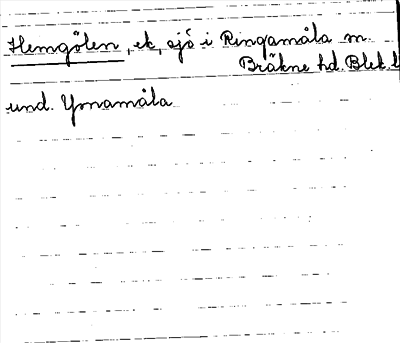 Hemgölen, ek, sjö i Ringamåla m.
Bräkne hd. Blek. l
und. Yrnamåla